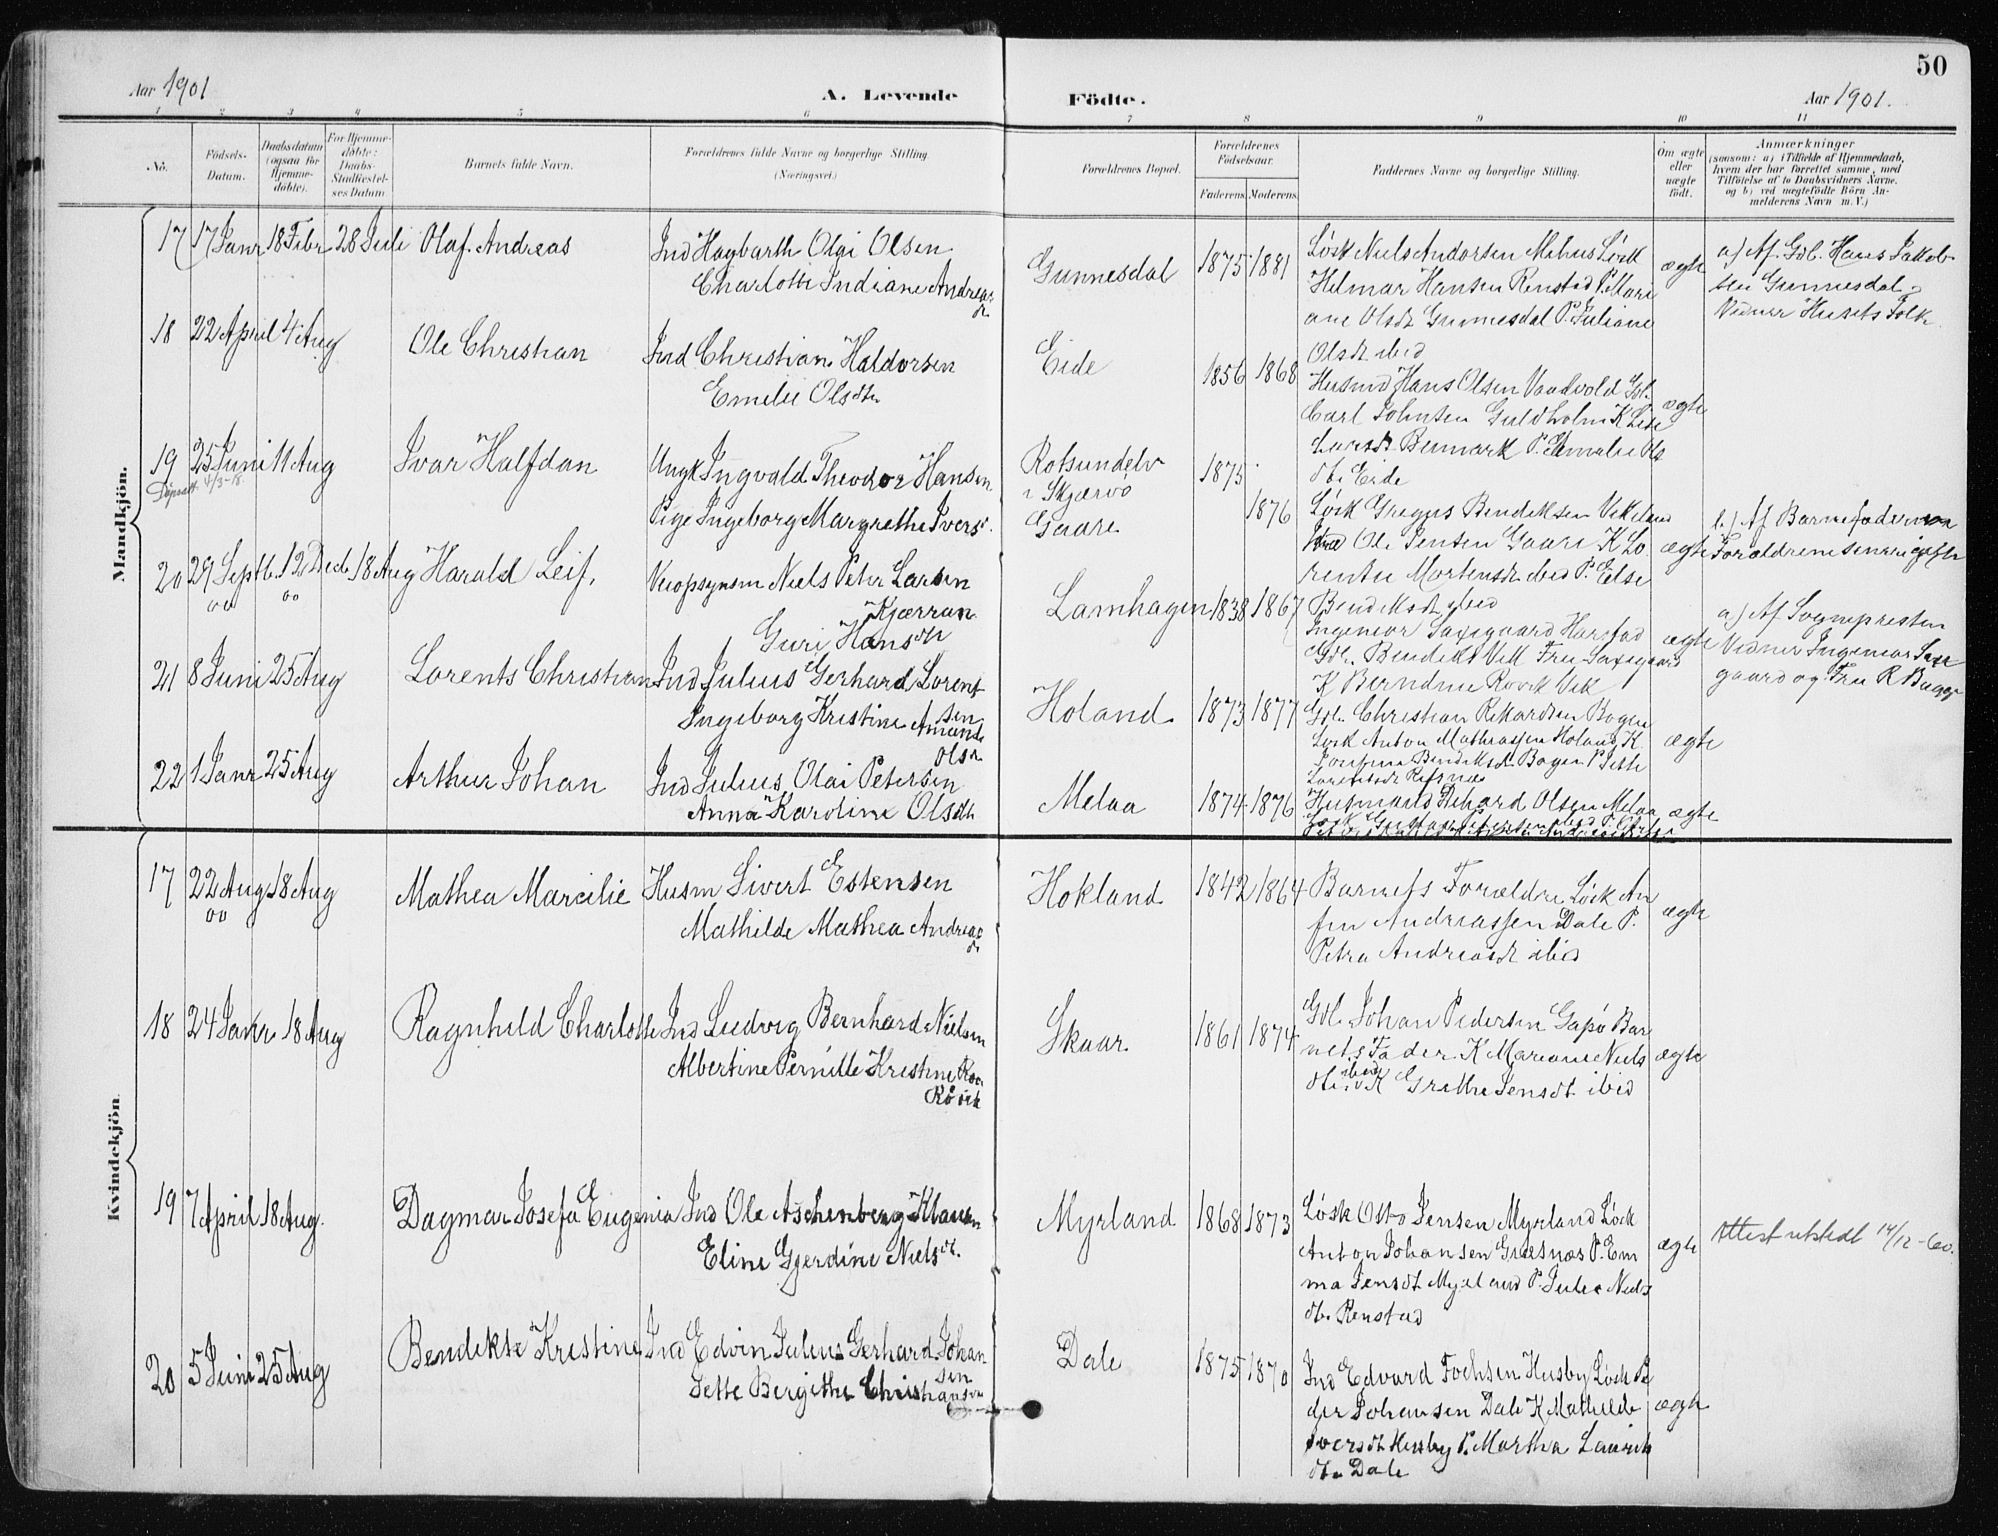 50
Aar 1901
A. Levende Födte.
Aar 1901.
1 2 3 4 5 6 7 8 9 10 11
No.
Födsels-Datum.
Daabsdatum (ogsaa for Hjemme-döbte).
For Hjemme-döbte: Daabs-Stadfæstelses Datum.
Barnets fulde Navn.
Forældrenes fulde Navne og borgerlige Stilling (Næringsvei.)
Forældrenes Bopæl.
Forældrenes Födselsaar.
Faderens. Moderens.
Faddernes Navne og borgerlige Stilling.
Om ægte eller uægte födt.
Anmærkninger
(saasom: a) i Tilfælde af Hjemmedaab,
hvem der har forrettet samme, med
Tilföielse af to Daabsvidners Navne,
og b) ved uægtefödte Börn An-
melderens Navn m. V.)
Mandkjön.
17 17 Janr 18 Febr 28 Juli Olaf Andreas
Ind Hagbarth Olai Olsen
Charlotte Indiane Andreas
dr
Gunnesdal 1875 1881
Løsk Niels Andorsen Melhus Løsk
Hilmar Hansen Renstad P. Mari
ane Olsdt Gunnesdal P. Juliane
Olsdt ibid
ægte
a) Af Gdb. Hans Jakob-
sen Gunnesdal
Vidner Husets Folk
18 22 April 4 Aug Ole Christian
Ind Christian Haldorsen
Emelie Olsdtr
Eide 1856 1868
Husmd Hans Olsen Vandvold Gdb.
Carl Johnsen Guldholm K Lise
Larsdt Benmark P. Emalie Ols
dtr Eide
ægte
19 25 Juni 11 Aug Ivar Halfdan
Døpsatt. 4/3-18.
Ungk Ingvald Theodor Hansen
Pige Ingeborg Margrethe Ivers.
Rotsundelv
i Skjærvø
Gaare
1875
1876
Løsk Gregus Bendiksen Vikeland
Ole Jensen Gaare K Lo
rentse Mortensdt ibid P. Else
Bendiksdt ibid
ægte
b.) Af Barnefaderen
Forældrene senere gifte
20 29 Septb. 12 Decb. 18 Aug Harald Leif.
00 00
Veiopsynsm Niels Petr Larsen
Kjærran
Guri Hansdtr
Lamhagen 1838 1867
Ingeniør Saxegaard Harstad
Gdb. Bendikt Vik Fru Saxegaard
K Berndine Rovik Vik
ægte
a) Af Sognepresten
Vidner Ingeniør Saxe
gaard og Fru R Bugge
21 8 Juni 25 Aug Lorents Christian
Ind Julius Gerhard Lorent
sen
Ingeborg Kristine Amanda
Olsdt
Holand 1873 1877
Gdb. Christian Rikardsen Bogen
Løsk Anton Mathiassen Holand K.
Bendiksdt Bogen P Jette
Lorentsdt Refsnæs
ægte
22 1 Janr 25 Aug Arthur Johan
Ind Julius Olai Petersen
Anna Karoline Olsdtr
Melaa 1874 1876
Husmand Rikard Olsen Melaa
ægte
Kvindekjön
17 22 Aug 18 Aug Mathea Marcilie
00
Husm Sivert Estensen
Mathilde Mathea Andreas
dr
Hokland 1842 1864
Barnets Forældre Løsk An
fin Andreassen Dale P.
Petra Andreasdt ibid
ægte
18 24 Janr 18 Aug Ragnhild Charlotte
Ind Ludvig Bernhard Nielsen
Albertine Pernille Kristine
Rövik
Skaar 1861 1874
Gdb. Johan Pedersen Gapø Bar
nets Fader K Mariane Niels
dtr ibid K Grethe Jensdt ibid
ægte
19 7 April 18 Aug. Dagmar Josefa Eugenia
Ind Ole Aschenberg Klausen
Eline Gjerdine Nielsdt.
Myrland 1868 1873
Løsk Otto Jensen Myrland Løsk
Anton Johansen Græsnæs P. Em
ma Jensdt Myrland P. Julie Niels
dtr. Renstad
ægte
Attest utstedt 14/12-60.
20 5 Juni 25 Aug Bendikte Kristine
Ind Edvin Julius Gerhard Johan
sen
Jette Bergitte Christiansdtr
Dale 1875 1870
Ind Edvard Fochsen Husby Løsk Pe
der Johansen Dale K Mathilde
Iversdt Husby P. Martha Laurits
dtr Dale
ægte